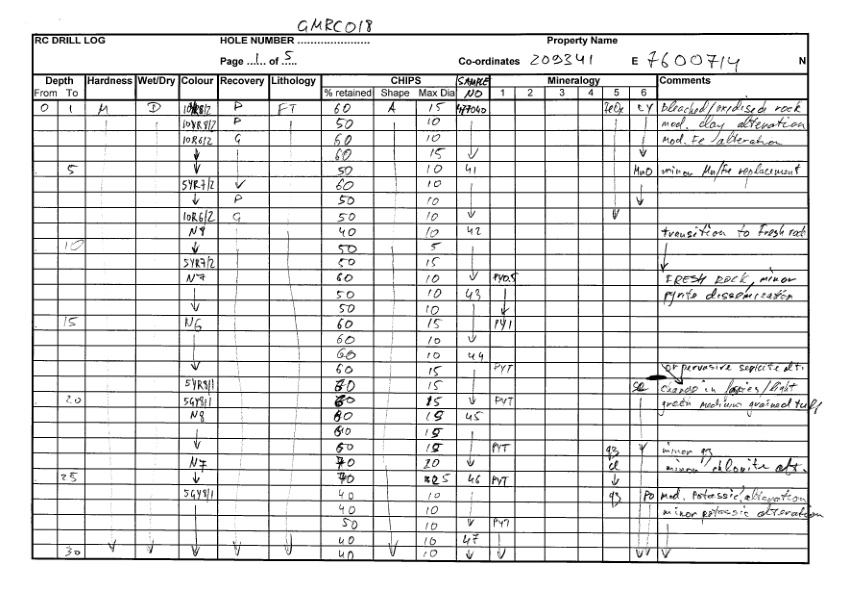 GMRC018
RC DRILL LOG HOLE NUMBER ...................... Property Name
Page ...1... of ..5... Co-ordinates 209341 E 7600714 N
Depth Hardness Wet/Dry Colour Recovery Lithology CHIPS SAMPLE Mineralogy Comments
From To % retained Shape Max Dia NO 1 2 3 4 5 6
0 1 M D 10YR8/2 P FT 60 A 15 477040 FeOx cy Bleached/oxidised rock
10YR8/2 P 50 10 mod. clay alteration
10R6/2 G 60 10 mod. Fe alteration
60 15
5 50 10 41 MnO minor Mn/Fe replacement
5YR7/2 60 10
P 50 10
10R6/2 G 50 10
N8 40 10 42 transition to fresh rock
10 50 5
5YR7/2 50 15
N7 60 10 PY0.5 FRESH ROCK, minor
50 10 43 pyrite dissemination
50 10
15 N6 60 15 PY1
60 10
60 10 44
60 15 PYT or pervasive sericite alt.
5YR8/1 70 15 se change in lapies/light
20 5GY8/1 60 15 PYT green medium grained tuff
N8 60 15 45
60 15
60 15 PYT qz minor qz
N7 70 20 cl minor chlorite alt.
25 70 25 46 PYT
5GY8/1 40 10 qz Po Mod. Potassic alteration
40 10 minor potassic alteration
50 10 PYT
40 10 47
30 40 10